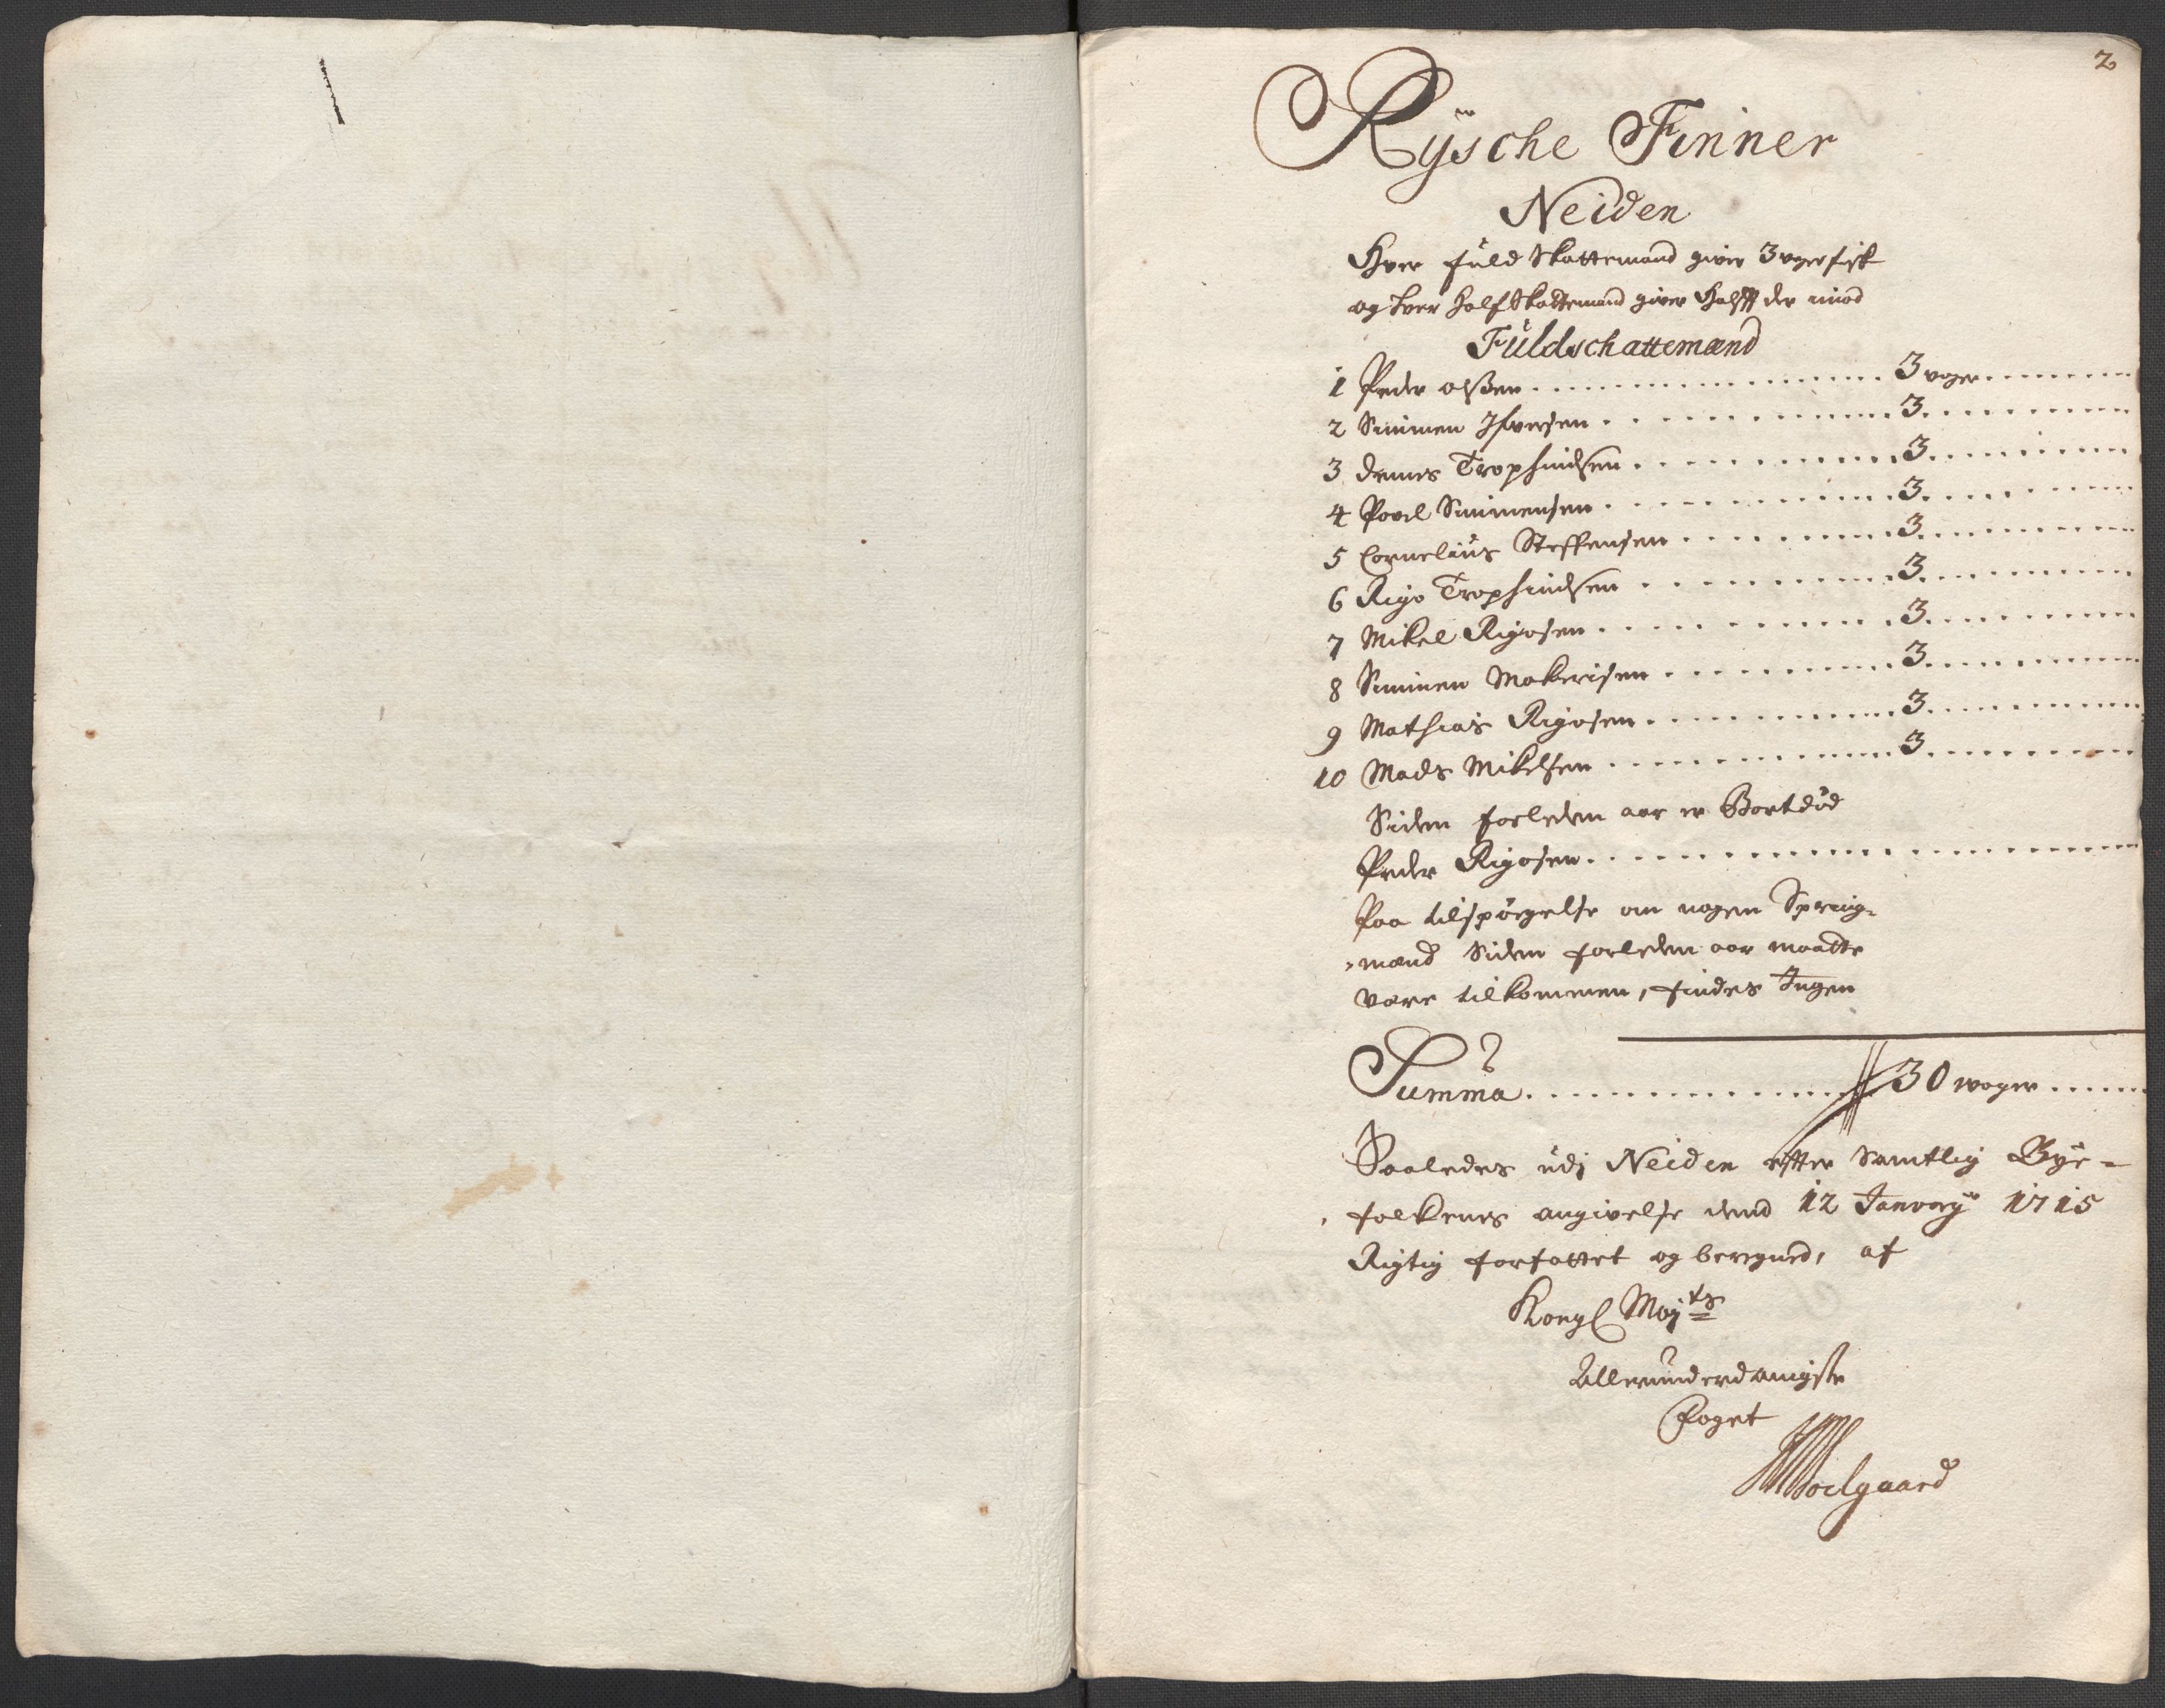 2
Rÿsche Finner
Neiden
Hver fuld Skattemand giver 3 voger fisk
og hver half Skattemand giver Halfft der imod
Fuldschattemænd
1 Peder olsen 3 voger
2 Simmen Ifversen 3
3 Trophindsen 3
4 Povel Simmensen 3
5 Cornelius Steffensen 3
6 Rigo Trophindsen 3
7 Mikel Rigosen 3
8 Simmen Makerisen 3
9 Mathias Rigosen 3
10 Mads Mikelsen 3
Siden forleden aar er Bortdöd
Peder Rigosen
Paa tilspörgelse om nogen Spring-
-mænd Siden forleden aar maatte
være tilkommen, findes Ingen
Summa 30 woger
Saaledes udj Neiden efter Samtlig Bÿe-
folkenes angivelse dend 12 Janvarÿ 1715
Rigtig forfattet og beregned, af
Kongl Maj ts
Allerunderdanigste
Foget
Soelgaard